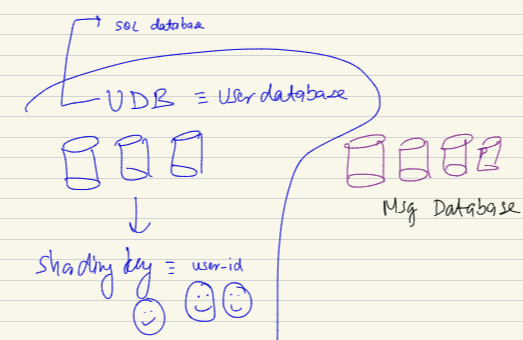 SQL database
UDB ≡ User database
Msg Database
Shading key ≡ user-id